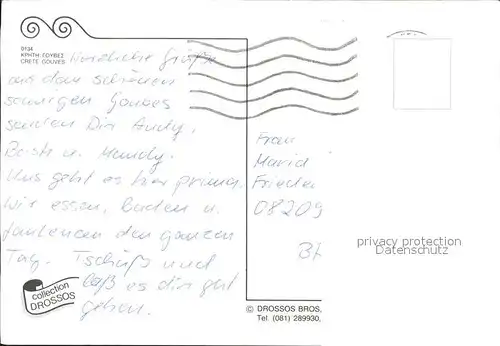 0134
ΚΡΗΤΗ: ΓΟΥΒΕΣ
CRETE: GOUVES
Herzliche Grüße
aus dem schönen
sonnigen Gouves
senden Dir Andy,
u. Mandy.
Uns geht es hier prima.
Wir essen, Baden u.
faulenzen den ganzen
Tag. Tschüß und
laß es dir gut
gehen.
Frau
Friede
08209
collection
DROSSOS
© DROSSOS BROS.
Tel. (081) 289930,
privacy protection
Datenschutz